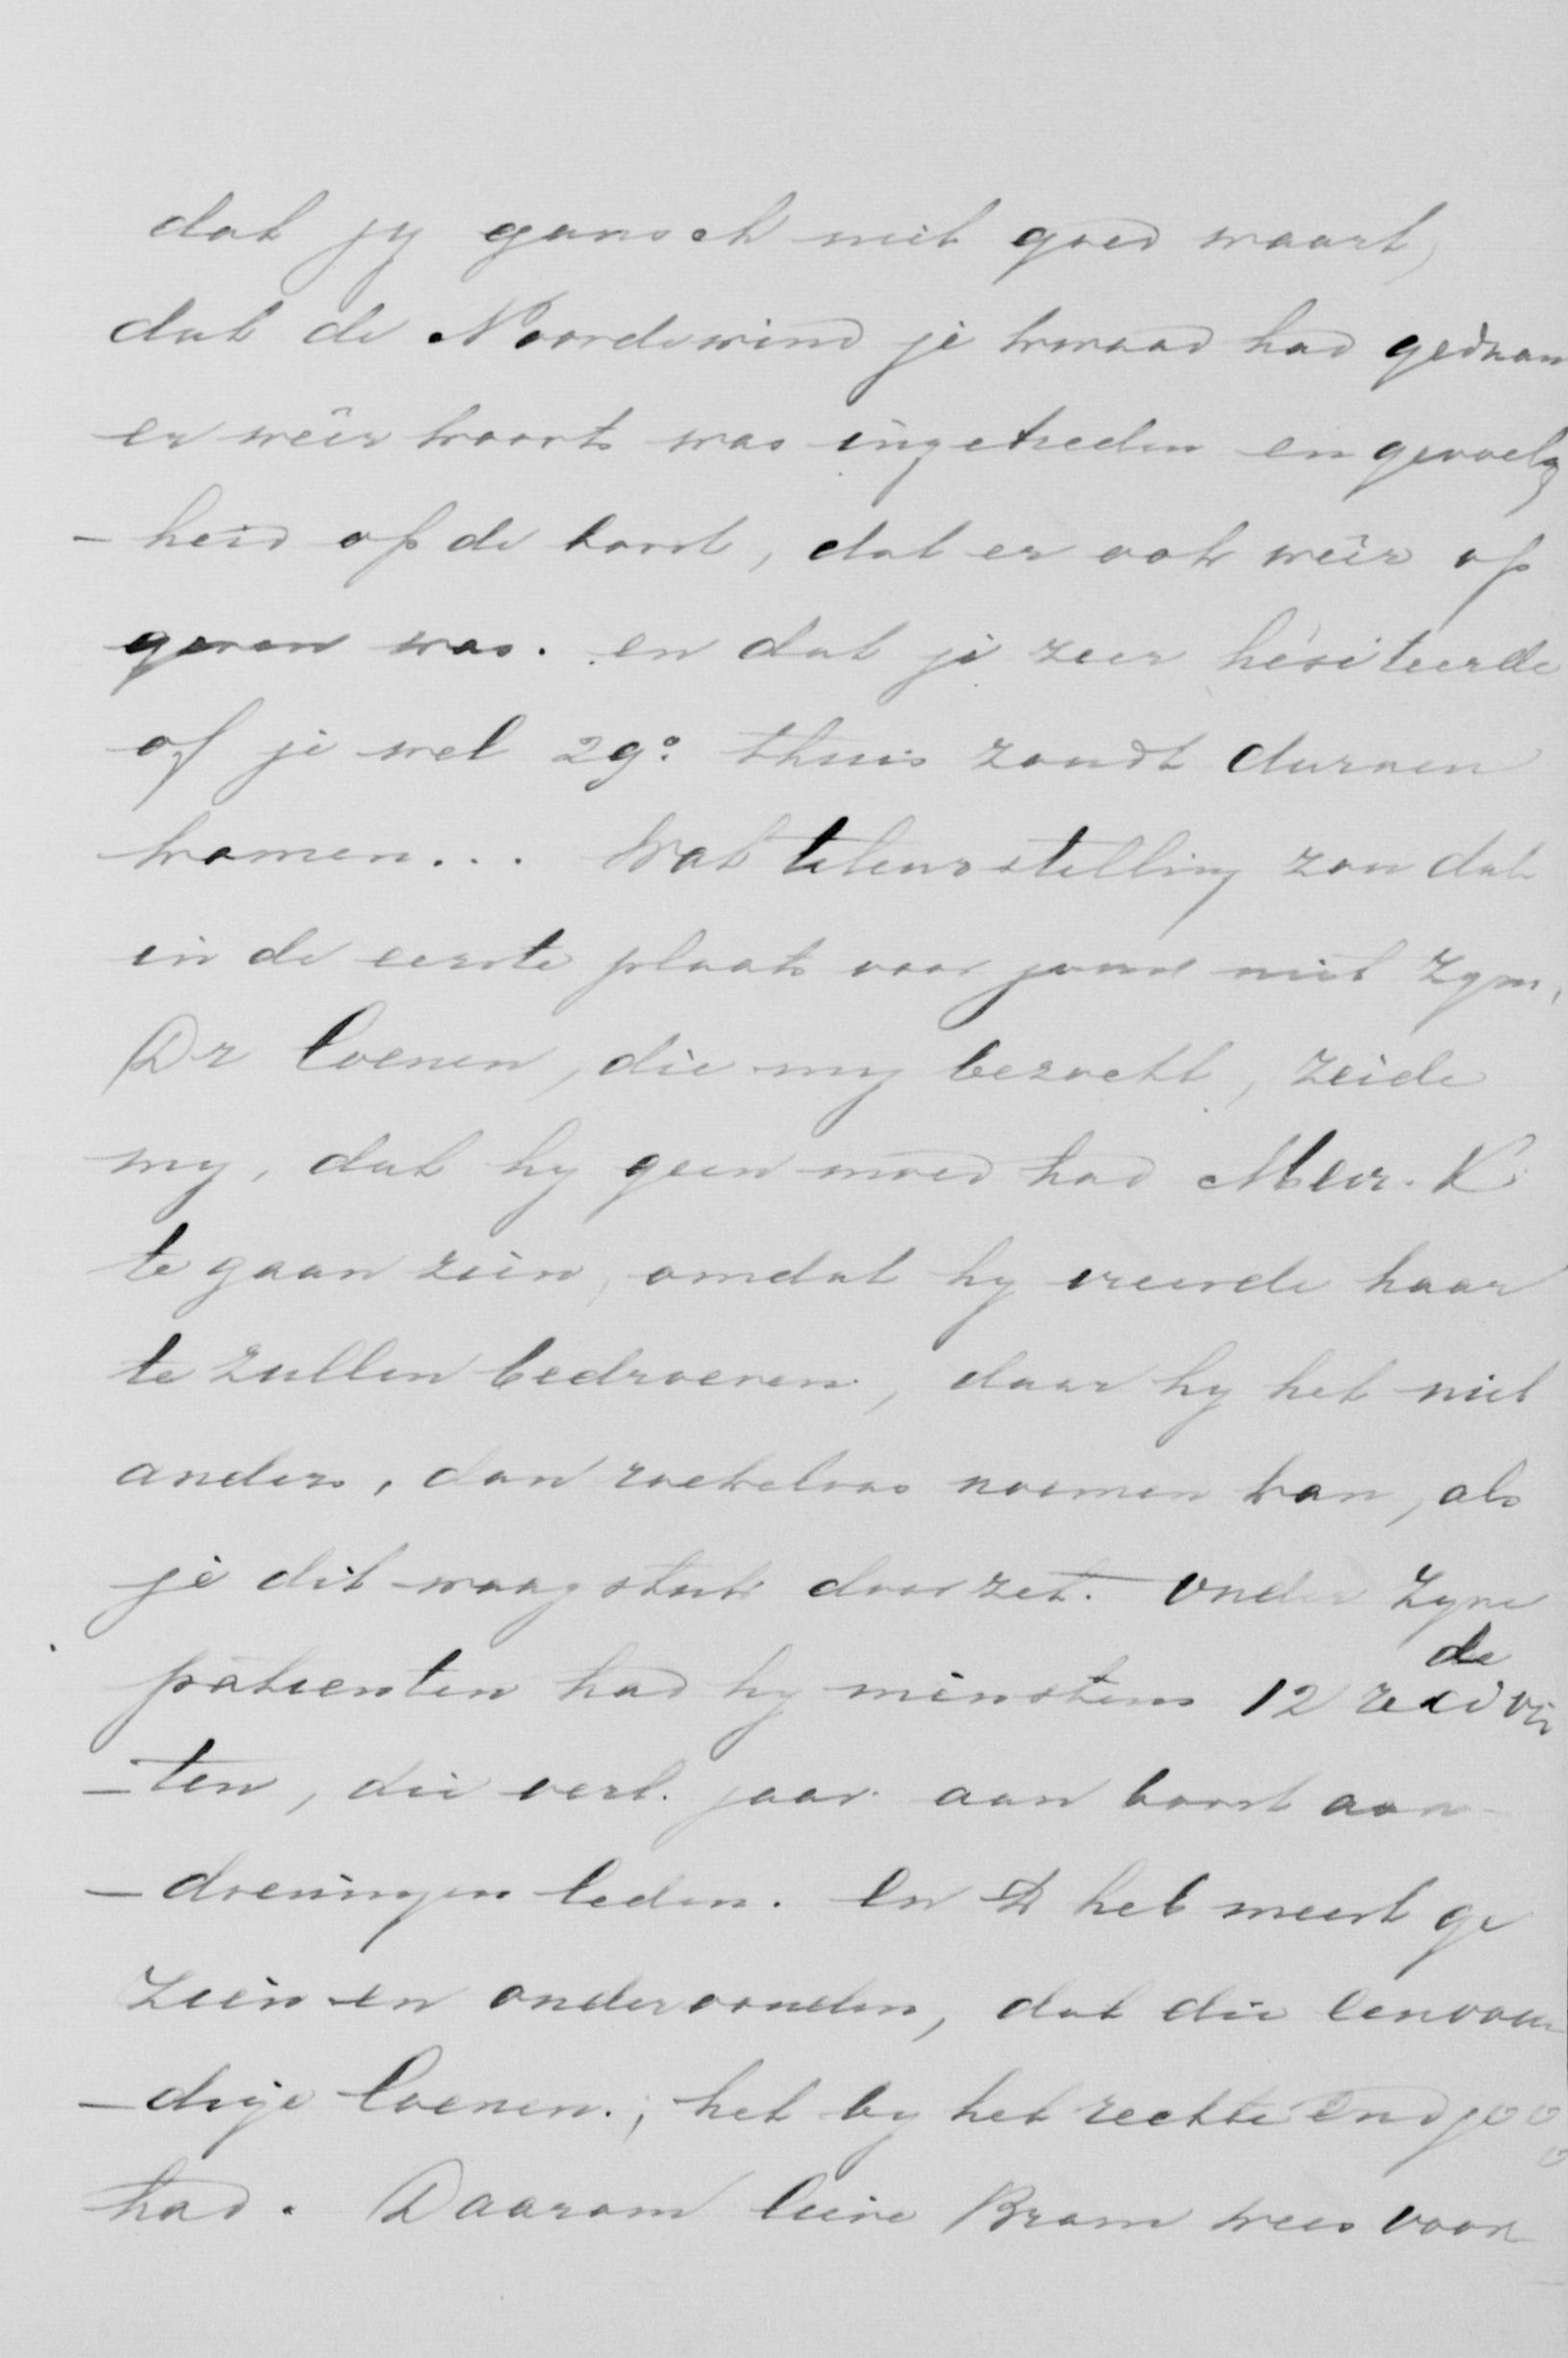 dat jy gansch niet goed waart,
dat de Noordewind je kwaad had gedaan
er weêr koorts was ingetreden en gevoelig
- heid op de borst, dat er ook weêr op
geven was. en dat je zeer hésiteerde
of je wel 29º thuis zoudt durven
komen... Wat teleurstelling zou dat
in de eerste plaats voor jouw niet zyn,
Dr Coenen, die my bezocht, zeide
my, dat hy geen moed had Mevr. K
te gaan zien, omdat hy vreesde haar
te zullen bedroeven, daar hy het niet
anders, dan roekeloos noemen kan, als
je dit waagstuk doorzet. Onder zyne
patienten had hy minstens 12 de
ten, die verl. jaar aan borst aan
- doeningen leden. En het meest ge
zien en ondervonden, dat die eenvou
- dige Coenen, het by het rechte end
had. Daarom lieve Bram wees voor